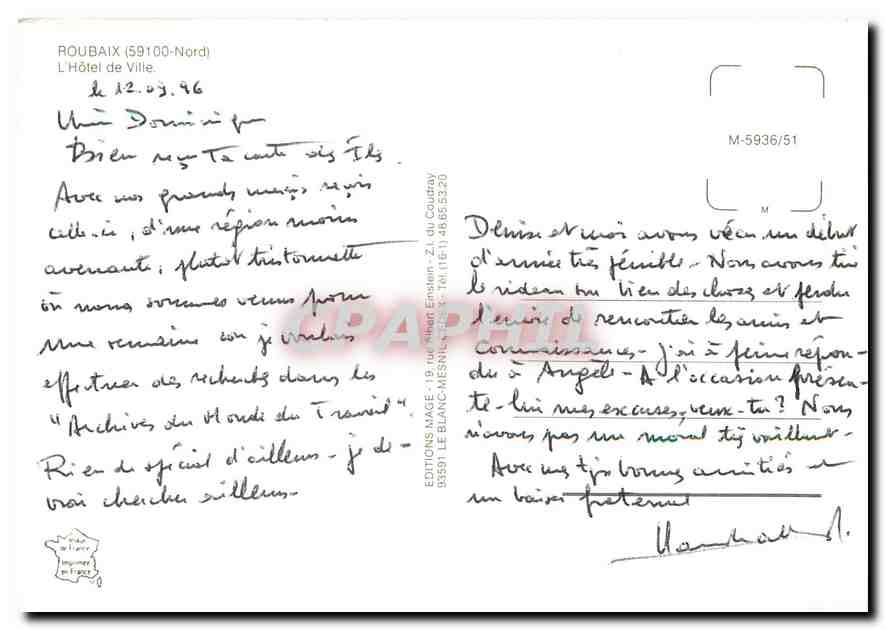 ROUBAIX (59100-Nord)
L'Hôtel de Ville.
le 12.09.96
Dominique
Bien reçu ta carte des Îles.
Avec nos grands mercis reçois
celle-ci, d'une région moins
avenante, plutot tristounette
où nous sommes venus pour
une semaine car je voulais
effectuer des recherches dans les
"Archives du Monde du Travail".
Rien de spécial d'ailleurs - je de-
vrai chercher ailleurs -
Made
in France
Imprimée
en France
EDITIONS MAGE - 19, rue Albert Einstein - Z.I. du Coudray
93591 LE BLANC-MESNIL CEDEX - Tél. (16-1) 48.65.53.20
CPAPHIL
M-5936/51
M
Denise et moi avons vécu un début
d'année très pénible - Nous avons tiré
le rideau sur bien des choses et perdu
l'envie de rencontrer les amis et
connaissances - j'ai à peine répon-
du à Angèle - A l'occasion présen-
te-lui mes excuses, veux-tu? Nous
n'avons pas un moral très vaillant -
Avec mes tjs bonnes amitiés et
un baiser fraternel